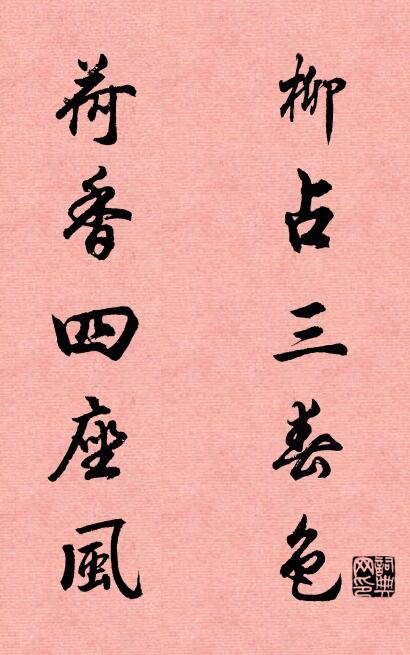 柳占三春色
荷香四座風
詞典網印